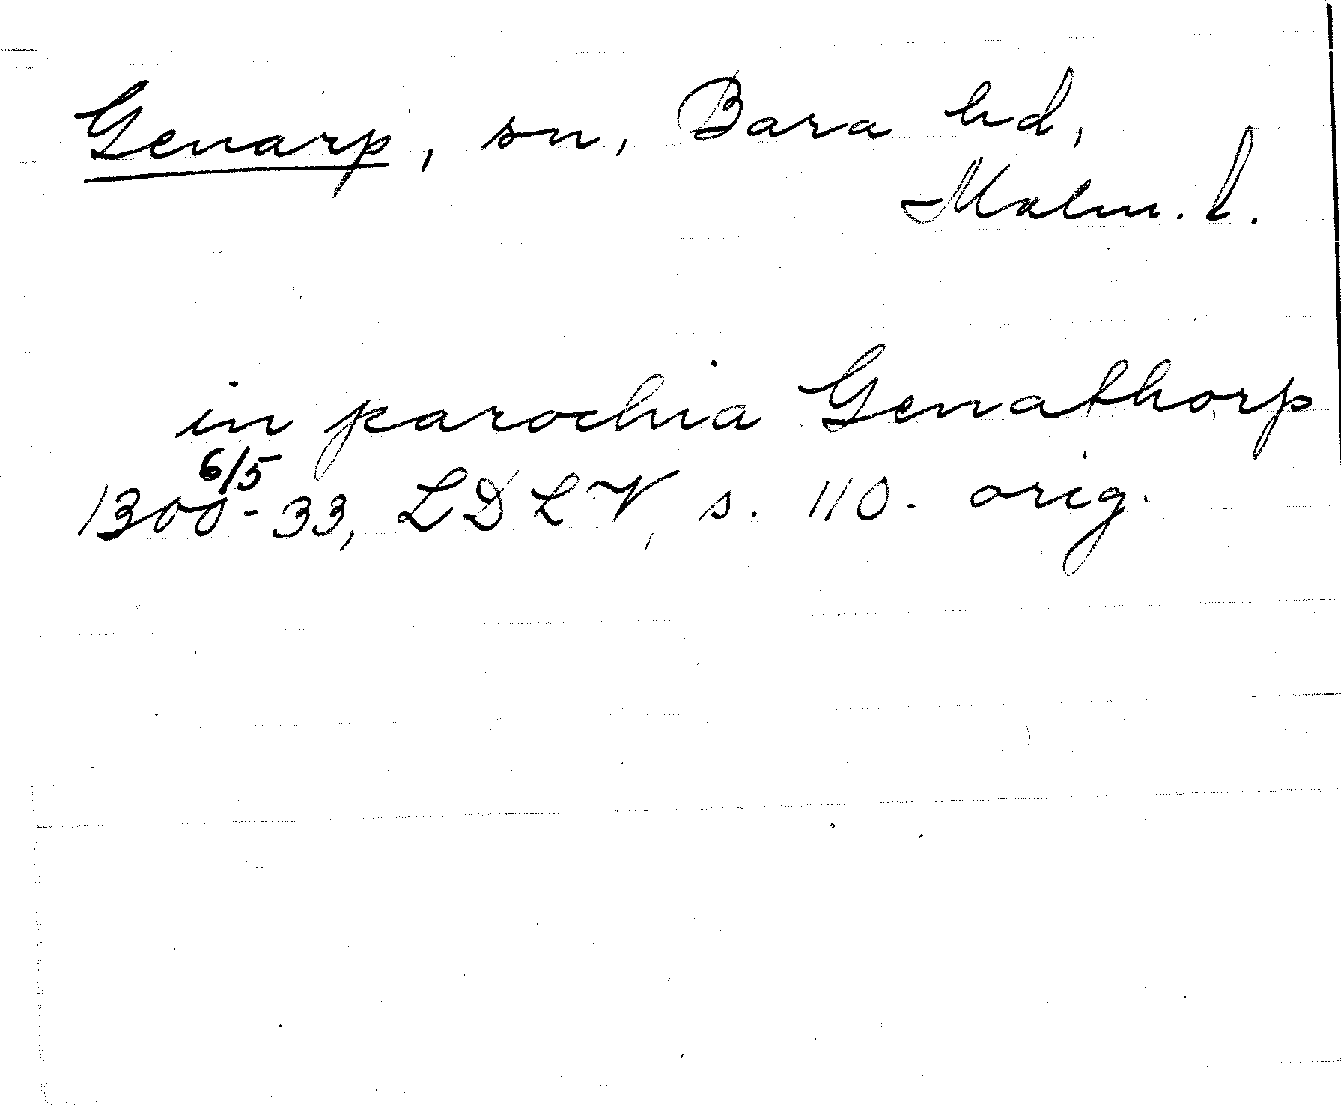 Genarp, sn, Bara hd,
Malm. l.
in parochia Genathorp
6/5
1300-33, LDLV, s. 110. orig.